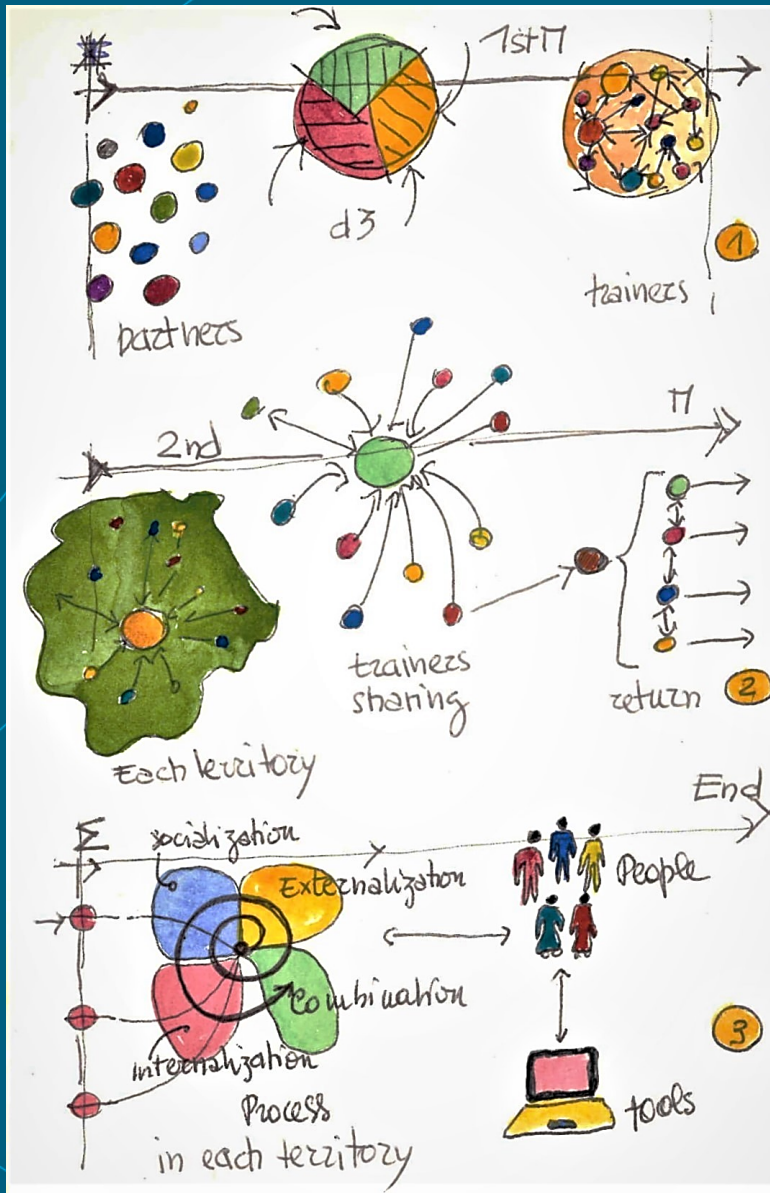 1st M
d3
partners
trainers
1
2nd
M
trainers
sharing
return
2
Each territory
End
Σ
socialization
Externalization
People
Combination
Internalization
3
Process
in each territory
tools